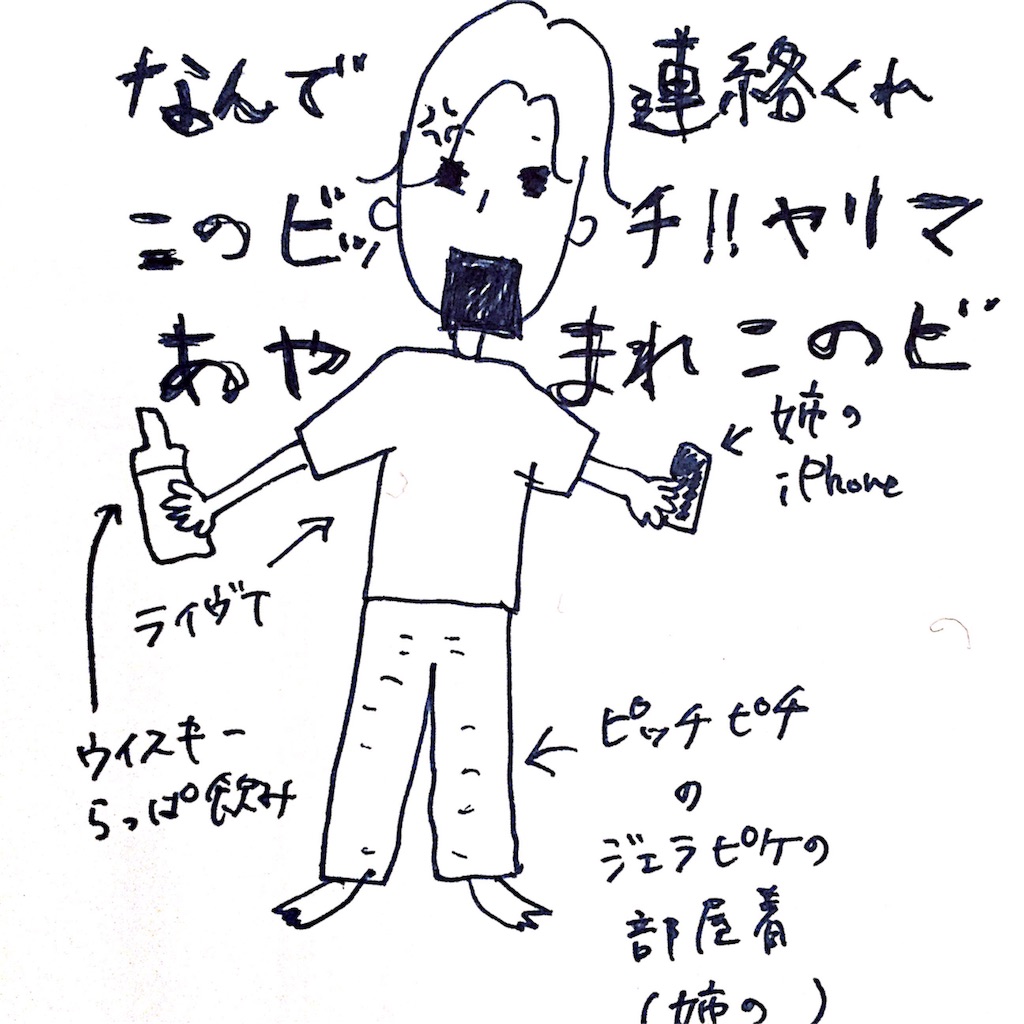 なんで 連絡くれ
このビッ チ!!ヤリマ
あや まれ このビ
姉の
iPhone
ライヴT
ウイスキー
らっぱ飲み
ピッチピチ
の
ジェラピケの
部屋着
(姉の)